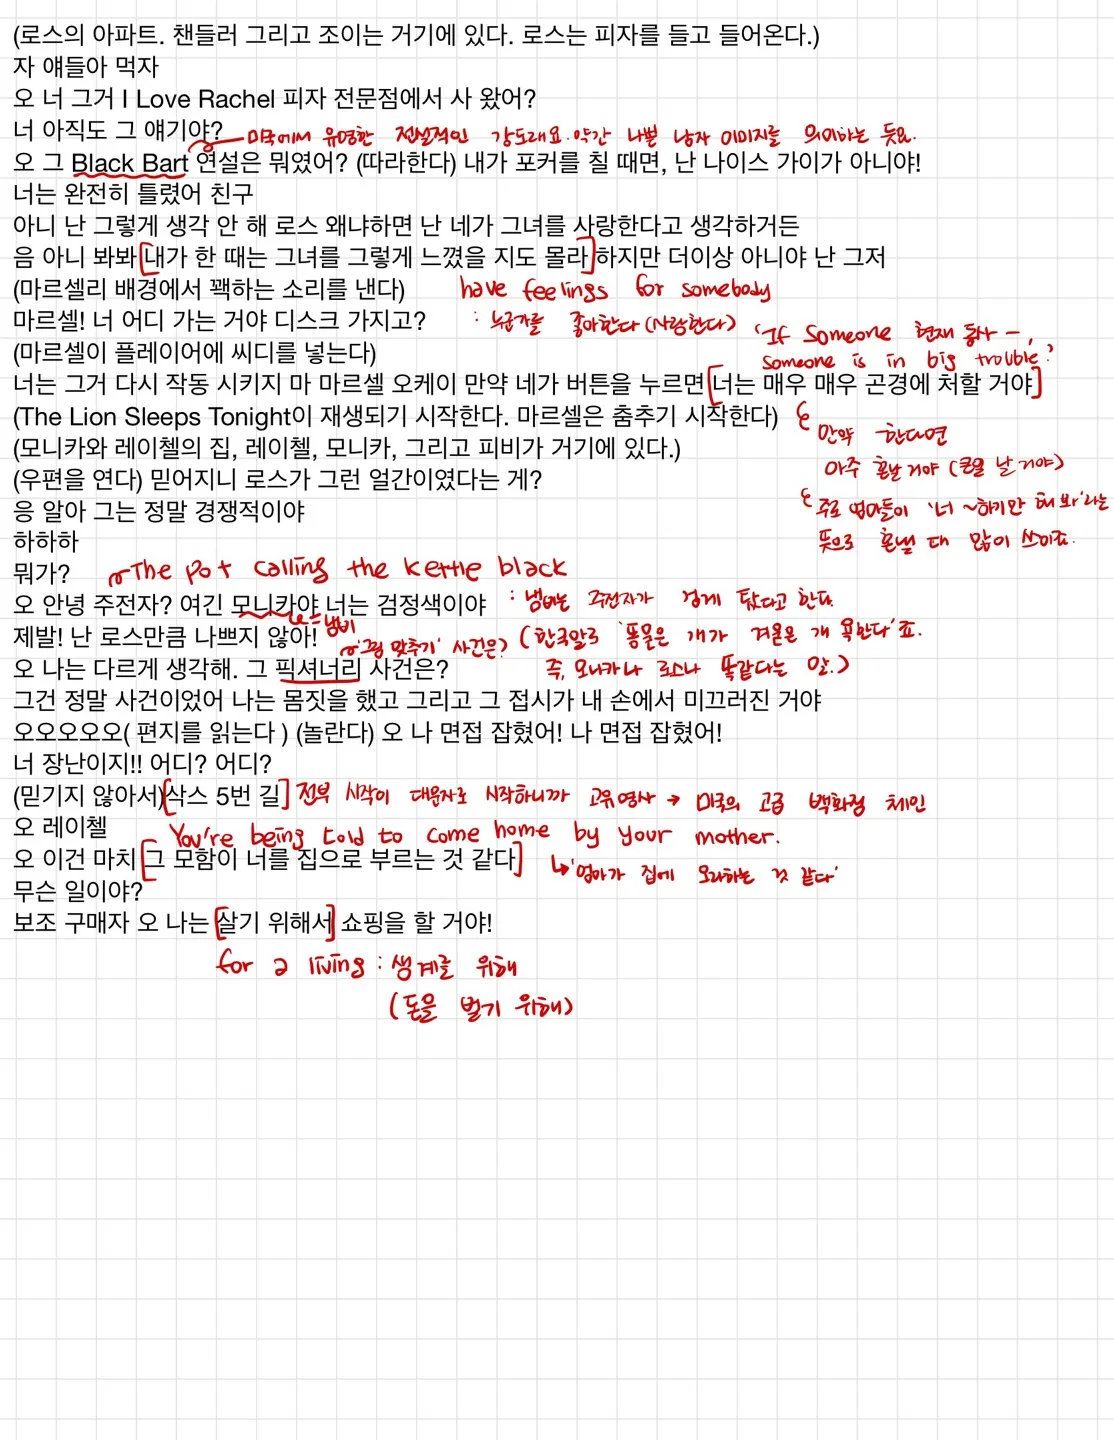 (로스의 아파트. 챈들러 그리고 조이는 거기에 있다. 로스는 피자를 들고 들어온다.)
자 얘들아 먹자
오 너 그거 I Love Rachel 피자 전문점에서 사 왔어?
너 아직도 그 얘기야?
미국에서 유명한 전설적인 강도래요. 약간 나쁜 남자 이미지를 의미하는 듯요.
오 그 Black Bart 연설은 뭐였어? (따라한다) 내가 포커를 칠 때면, 난 나이스 가이가 아니야!
너는 완전히 틀렸어 친구
아니 난 그렇게 생각 안 해 로스 왜냐하면 난 네가 그녀를 사랑한다고 생각하거든
음 아니 봐봐 [내가 한 때는 그녀를 그렇게 느꼈을 지도 몰라] 하지만 더이상 아니야 난 그저
(마르셀리 배경에서 꽥하는 소리를 낸다)
have feelings for somebody
: 누군가를 좋아한다 (사랑한다)
마르셀! 너 어디 가는 거야 디스크 가지고?
'If someone 현재 동사 ~,
someone is in big trouble'?
(마르셀이 플레이어에 씨디를 넣는다)
너는 그거 다시 작동 시키지 마 마르셀 오케이 만약 네가 버튼을 누르면 [너는 매우 매우 곤경에 처할 거야]
(The Lion Sleeps Tonight이 재생되기 시작한다. 마르셀은 춤추기 시작한다)
만약 ~한다면
아주 혼날 거야 (큰일 날 거야)
주로 엄마들이 '너 ~하기만 해 봐'라는
뜻으로 혼낼 때 많이 쓰이죠.
(모니카와 레이첼의 집, 레이첼, 모니카, 그리고 피비가 거기에 있다.)
(우편을 연다) 믿어지니 로스가 그런 얼간이였다는 게?
응 알아 그는 정말 경쟁적이야
하하하
뭐가?
The pot calling the kettle black
: 냄비는 주전자가 검게 탔다고 한다.
오 안녕 주전자? 여긴 모니카야 너는 검정색이야
= 냄비
(한국말로 '똥묻은 개가 겨묻은 개 욕한다'죠.
즉, 모니카나 로스나 똑같다는 말.)
제발! 난 로스만큼 나쁘지 않아!
'그림 맞추기' 사건은?
오 나는 다르게 생각해. 그 픽셔너리 사건은?
그건 정말 사건이었어 나는 몸짓을 했고 그리고 그 접시가 내 손에서 미끄러진 거야
오오오오오( 편지를 읽는다 ) (놀란다) 오 나 면접 잡혔어! 나 면접 잡혔어!
너 장난이지!! 어디? 어디?
(믿기지 않아서) [삭스 5번 길] 전부 시작이 대문자로 시작하니까 고유명사 → 미국의 고급 백화점 체인
오 레이첼
You're being told to come home by your mother.
오 이건 마치 [그 모함이 너를 집으로 부르는 것 같다]
↳ '엄마가 집에 오라하는 것 같다'
무슨 일이야?
보조 구매자 오 나는 [살기 위해서] 쇼핑을 할 거야!
for a living : 생계를 위해
(돈을 벌기 위해)